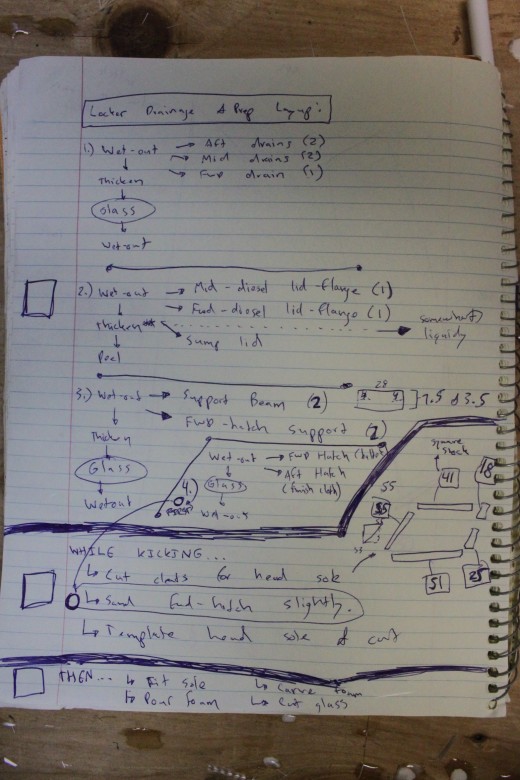 Locker Drainage & Prep Layup:
1.) Wet-out → Aft drains (2)
→ Mid drains (2)
Thicken → Fwd drain (1)
Glass
Wet-out
2.) Wet-out → Mid-diesel lid-flange (1)
→ Fwd-diesel lid-flange (1)
Thicken → somewhat liquidy
Sump lid
Peel
3.) Wet-out → Support Beam (2) 28 7.5 & 3.5
→ FWD-hatch support (2)
Thicken
Glass
Wetout
4.) Wet-out → FWD Hatch
→ Aft Hatch
Glass (finish cloth)
Wet-out
square stock
41
18
55
55
51
25
WHILE KICKING...
↳ Cut cleats for head sole
↳ Sand Fwd-hatch slightly.
↳ Template head sole & cut
THEN... ↳ Fit sole ↳ Carve foam
↳ Pour foam ↳ Cut glass